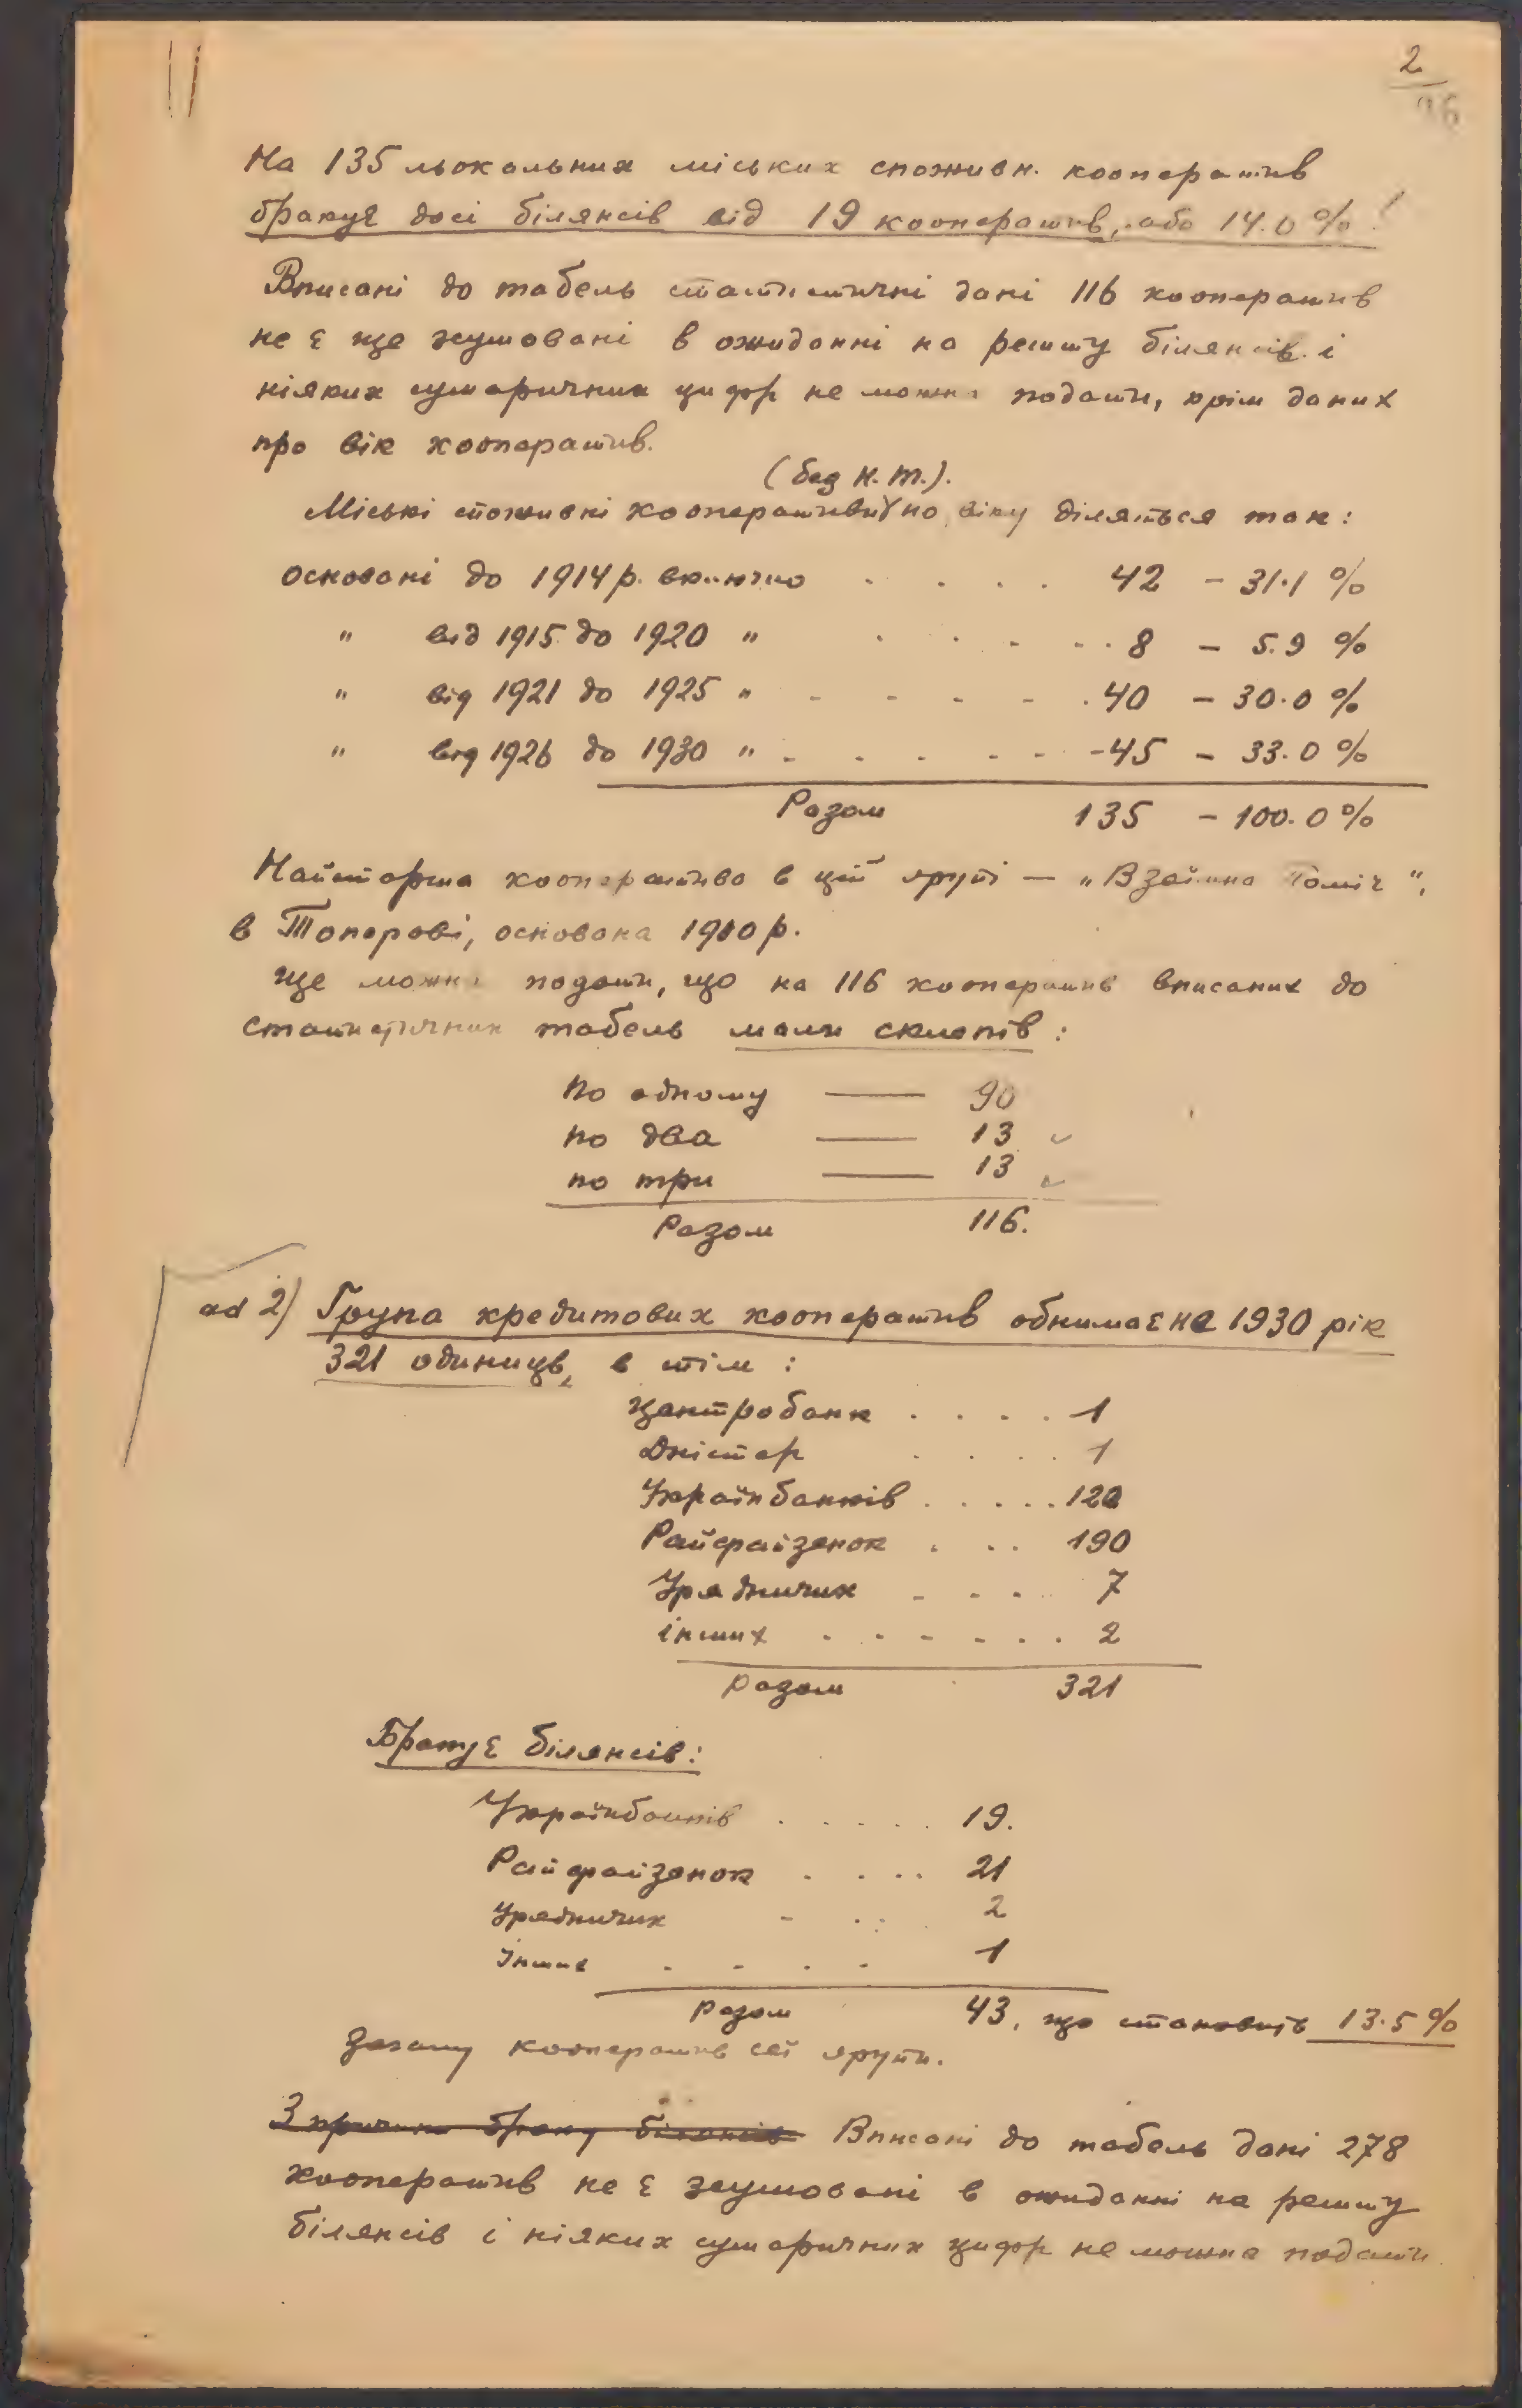 2
96
На 135 льокальних міських споживн. кооператив
бракує досі білянсів від 19 кооператив, або 14.0% !
Вписані до табель статистичні дані 116 кооператив
не є ще зсумовані в ожиданні на решту білянсів і
ніяких сумаричних цифр не можна подати, крім даних
про вік кооператив.
(без Н.Т.).
Міські споживні кооперативи по віку діляться так:
основані до 1914 р. включно . . . . 42 - 31.1 %
" від 1915 до 1920 " . . . . . 8 - 5.9 %
" від 1921 до 1925 " - - - - . 40 - 30.0 %
" від 1926 до 1930 " - . . - - -45 - 33.0 %
Разом 135 - 100.0 %
Найстарша кооператива в цій групі — „Взаїмна Поміч",
в Топорові, основана 1900 р.
Ще можна подати, що на 116 кооператив вписаних до
статистичних табель мали склепів :
по одному — 90
по два — 13
по три — 13
Разом 116.
ad 2) Група кредитових кооператив обнимає на 1930 рік
321 одиниць, в тім :
Центробанк . . . . 1
Дністер . . . . 1
Українбанків . . . . . 120
Райфайзенок . . . 190
Урядничих - - - . 7
інших . . - - - . . 2
разом 321
Бракує білянсів:
Українбанків . . . . . 19.
Райфайзенок . . . . 21
Урядничих - . : 2
Інших . - . - 1
разом 43, що становить 13.5 %
загалу кооператив сеї групи.
З причини браку білянсів Вписані до табель дані 278
кооператив не є зсумовані в ожиданні на решту
білянсів і ніяких сумаричних цифр не можна подати